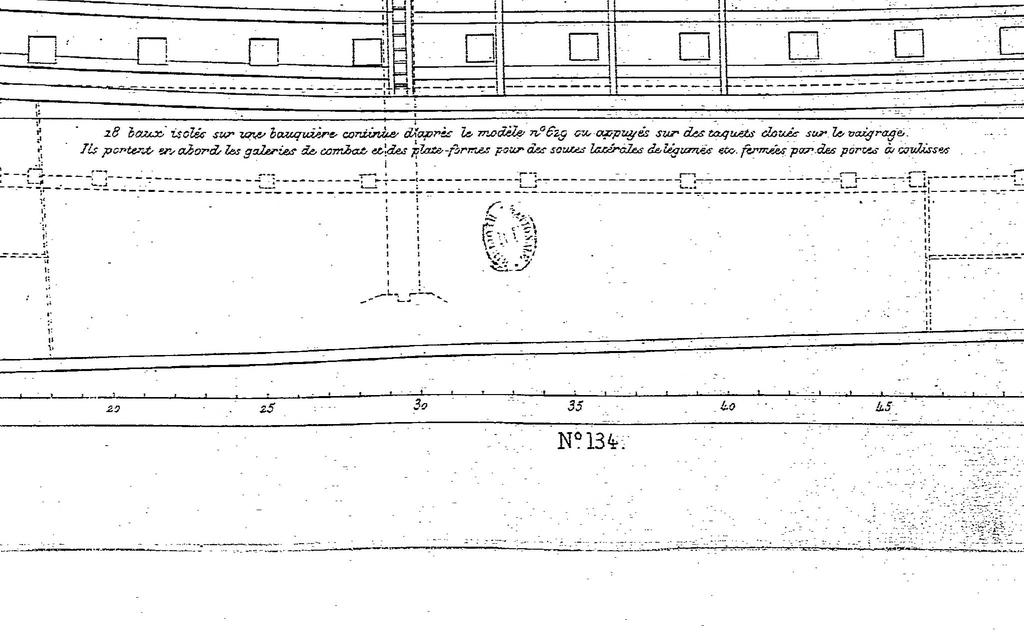 18 baux isolés sur une bauquière continue d'après le modèle nº 629 ou appuyés sur des taquets cloués sur le vaigrage.
Ils portent en abord les galeries de combat et des plate-formes pour des soutes latérales de légumes etc. fermées par des portes à coulisses
20 25 30 35 40 45
Nº 134.